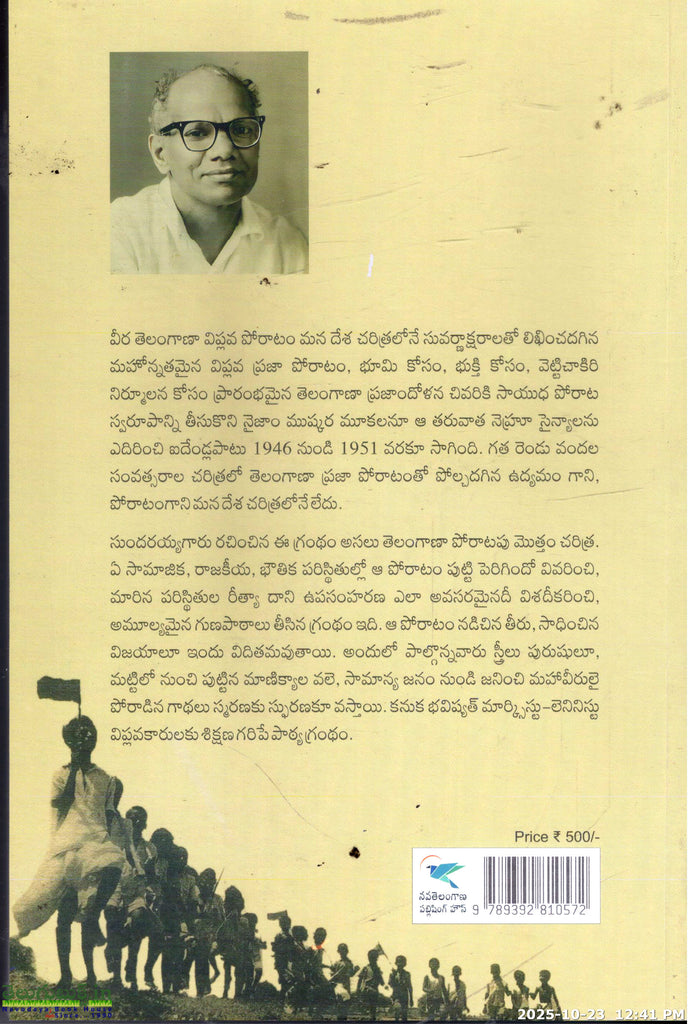 వీర తెలంగాణా విప్లవ పోరాటం మన దేశ చరిత్రలోనే సువర్ణాక్షరాలతో లిఖించదగిన
మహోన్నతమైన విప్లవ ప్రజా పోరాటం, భూమి కోసం, భుక్తి కోసం, వెట్టిచాకిరి
నిర్మూలన కోసం ప్రారంభమైన తెలంగాణా ప్రజాందోళన చివరికి సాయుధ పోరాట
స్వరూపాన్ని తీసుకొని నైజాం ముష్కర మూకలనూ ఆ తరువాత నెహ్రూ సైన్యాలను
ఎదిరించి ఐదేండ్లపాటు 1946 నుండి 1951 వరకూ సాగింది. గత రెండు వందల
సంవత్సరాల చరిత్రలో తెలంగాణా ప్రజా పోరాటంతో పోల్చదగిన ఉద్యమం గాని,
పోరాటంగాని మన దేశ చరిత్రలోనే లేదు.
సుందరయ్యగారు రచించిన ఈ గ్రంథం అసలు తెలంగాణా పోరాటపు మొత్తం చరిత్ర.
ఏ సామాజిక, రాజకీయ, భౌతిక పరిస్థితుల్లో ఆ పోరాటం పుట్టి పెరిగిందో వివరించి,
మారిన పరిస్థితుల రీత్యా దాని ఉపసంహరణ ఎలా అవసరమైనదీ విశదీకరించి,
అమూల్యమైన గుణపాఠాలు తీసిన గ్రంథం ఇది. ఆ పోరాటం నడిచిన తీరు, సాధించిన
విజయాలూ ఇందు విదితమవుతాయి. అందులో పాల్గొన్నవారు స్త్రీలు పురుషులూ,
మట్టిలో నుంచి పుట్టిన మాణిక్యాల వలె, సామాన్య జనం నుండి జనించి మహావీరులై
పోరాడిన గాథలు స్మరణకు స్ఫురణకూ వస్తాయి. కనుక భవిష్యత్ మార్క్సిస్టు-లెనినిస్టు
విప్లవకారులకు శిక్షణ గరిపే పాఠ్య గ్రంథం.
Price ₹ 500/-
నవతెలంగాణ
పబ్లిషింగ్ హౌస్
9 789392 810572
Navodaya Book House
2025-10-23 12:41 PM